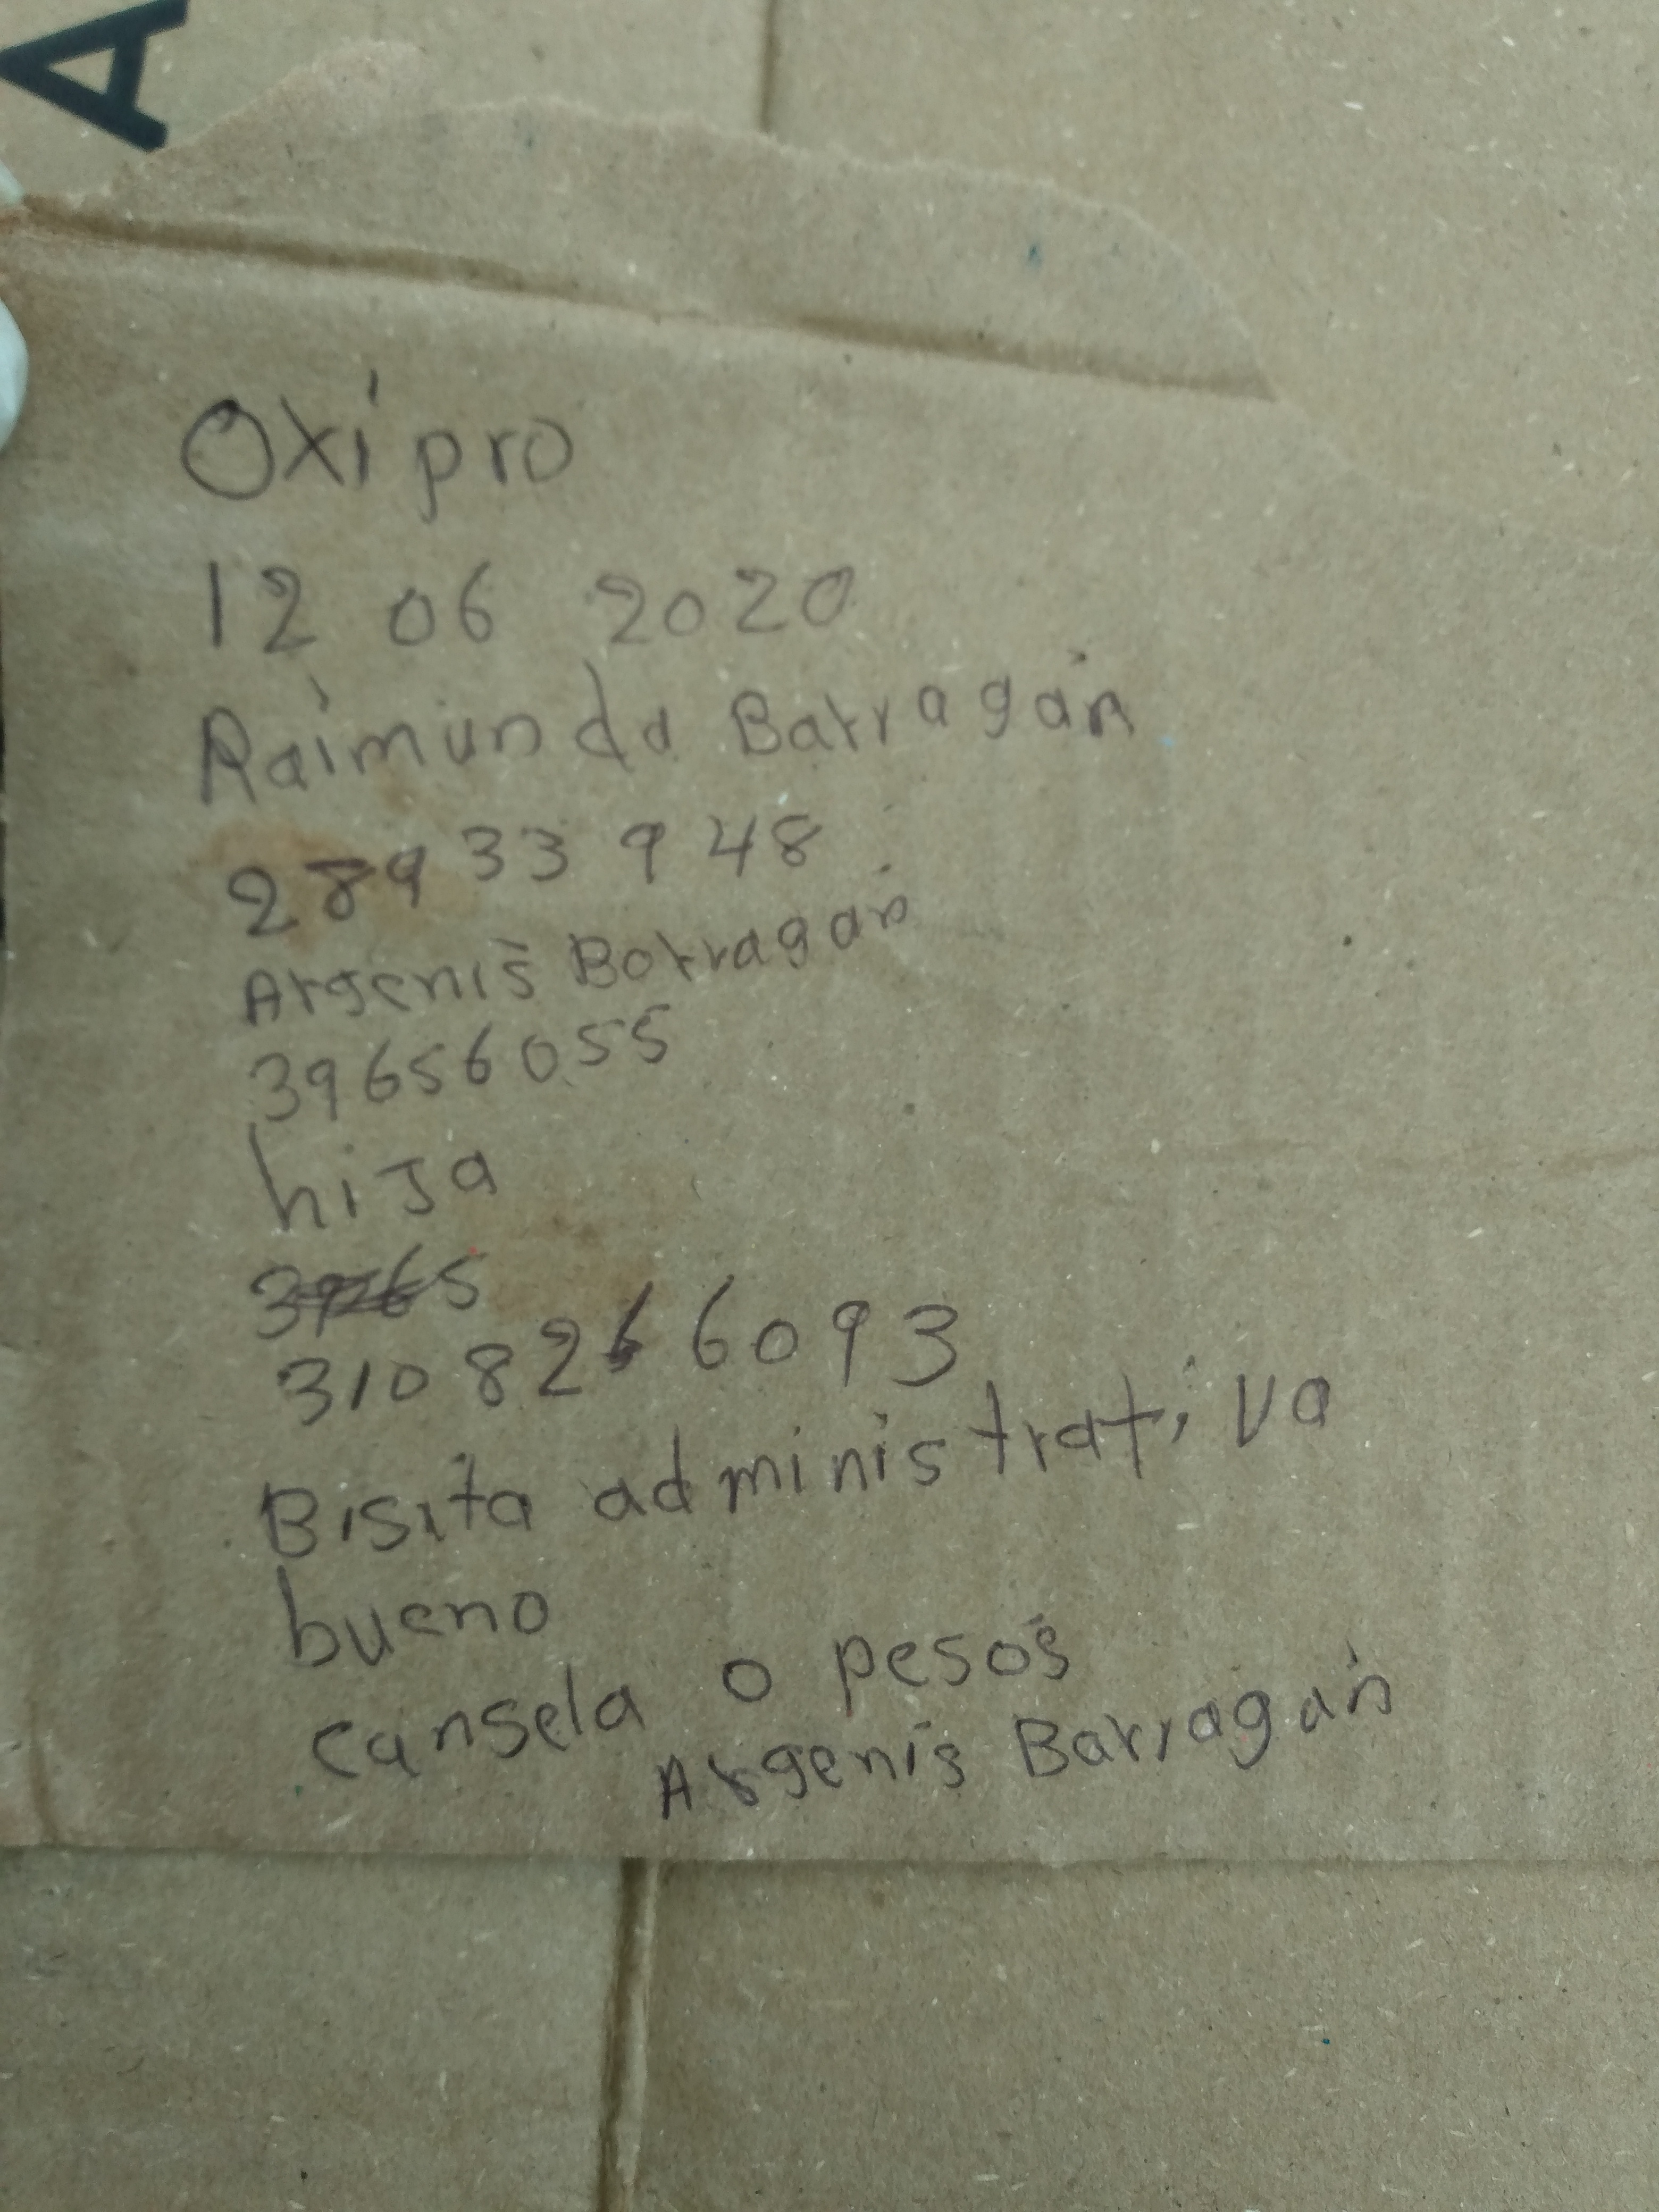 A
Oxipro
12 06 2020
Raimunda Barragán
28933948
Argenis Barragán
39656055
hiJa
39265
3108266093
Bisita administrativa
bueno
cansela 0 pesos
Argenis Barragán